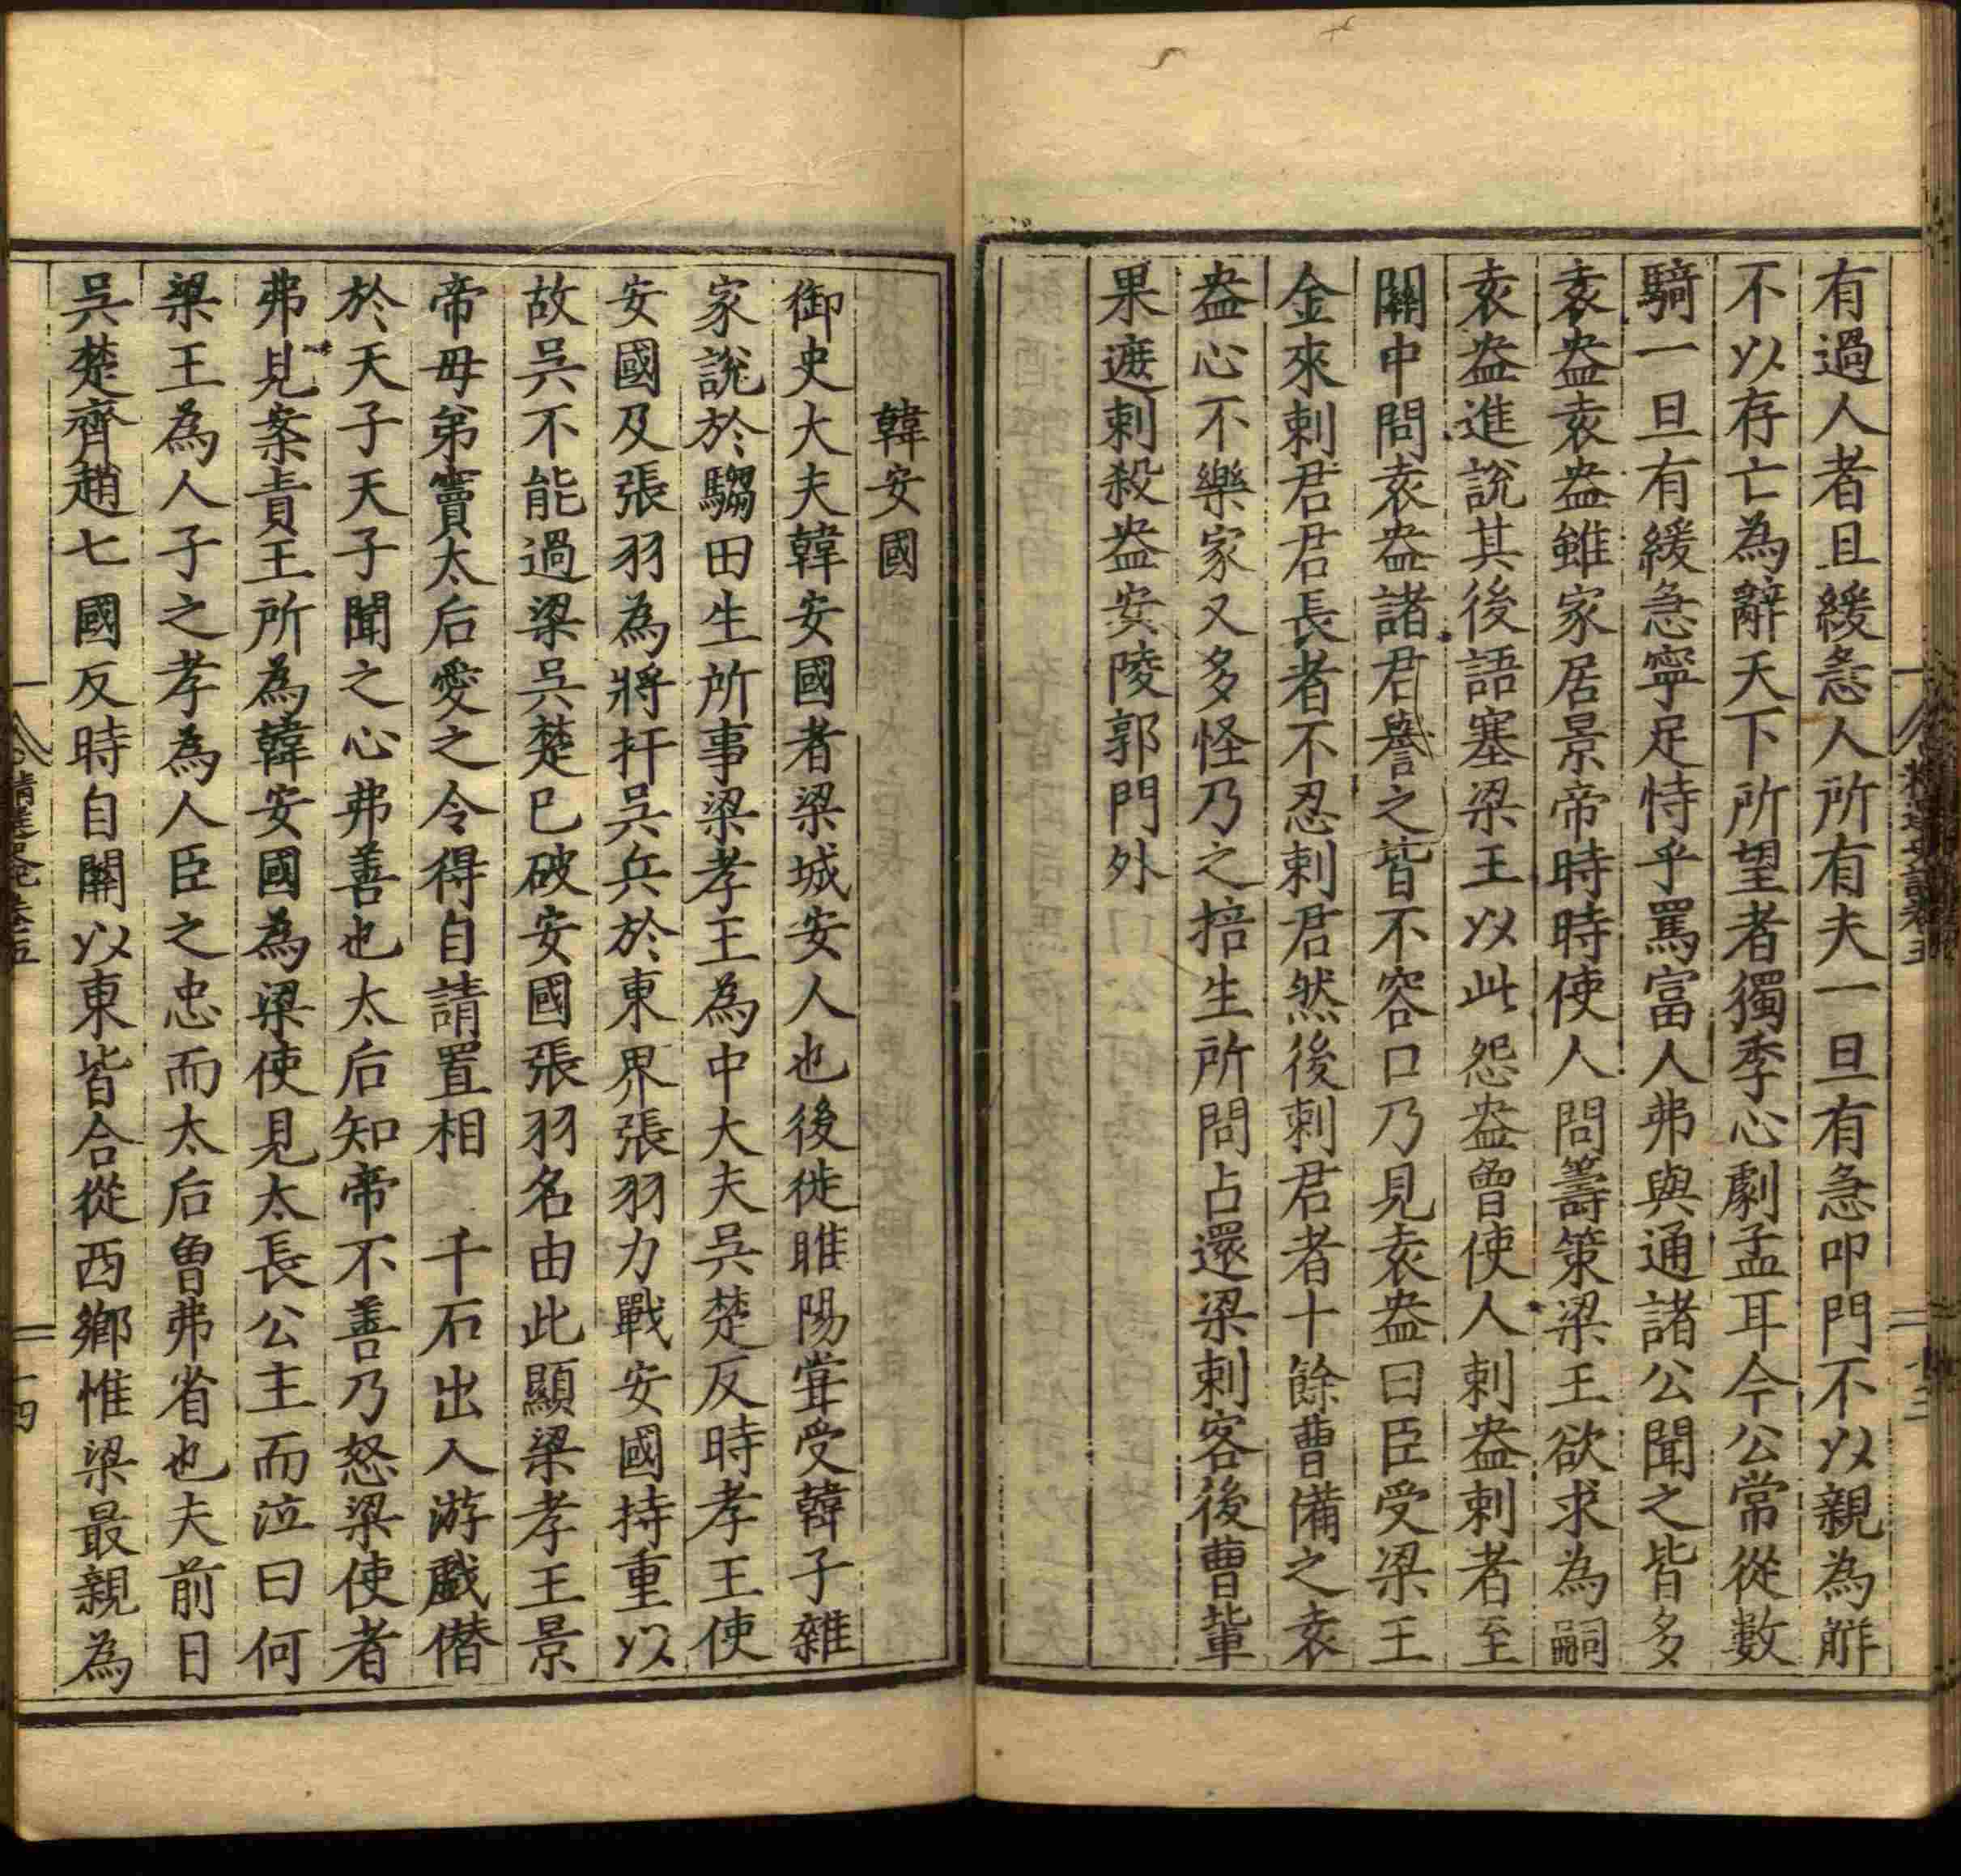 有過人者且緩急人所有夫一旦有急叩門不以親為觧
不以存亡為辭天下所望者獨季心劇孟耳今公常從數
騎一旦有緩急寧足恃乎罵富人弗與通諸公聞之皆多
袁盎袁盎雖家居景帝時時使人問籌策梁王欲求為嗣
袁盎進説其後語塞梁王以此怨盎曾使人刺盎刺者至
關中問袁盎諸君譽之皆不容口乃見袁盎曰臣受梁王
金來刺君君長者不忍刺君然後刺君者十餘曹備之袁
盎心不樂家又多怪乃之掊生所問占還梁刺客後曹輩
果遮刺殺盎安陵郭門外
韓安國
御史大夫韓安國者梁城安人也後徙睢陽甞受韓子雜
家說於騶田生所事梁孝王為中大夫吳楚反時孝王使
安國及張羽為將扞吳兵於東界張羽力戰安國持重以
故吳不能過梁吳楚已破安國張羽名由此顯梁孝王景
帝母弟竇太后愛之令得自請置相 千石出入游戯僭
於天子天子聞之心弗善也太后知帝不善乃怒梁使者
弗見案責王所為韓安國為梁使見太長公主而泣曰何
梁王為人子之孝為人臣之忠而太后曾弗省也夫前日
吳楚齊趙七國反時自關以東皆合從西鄉惟梁最親為